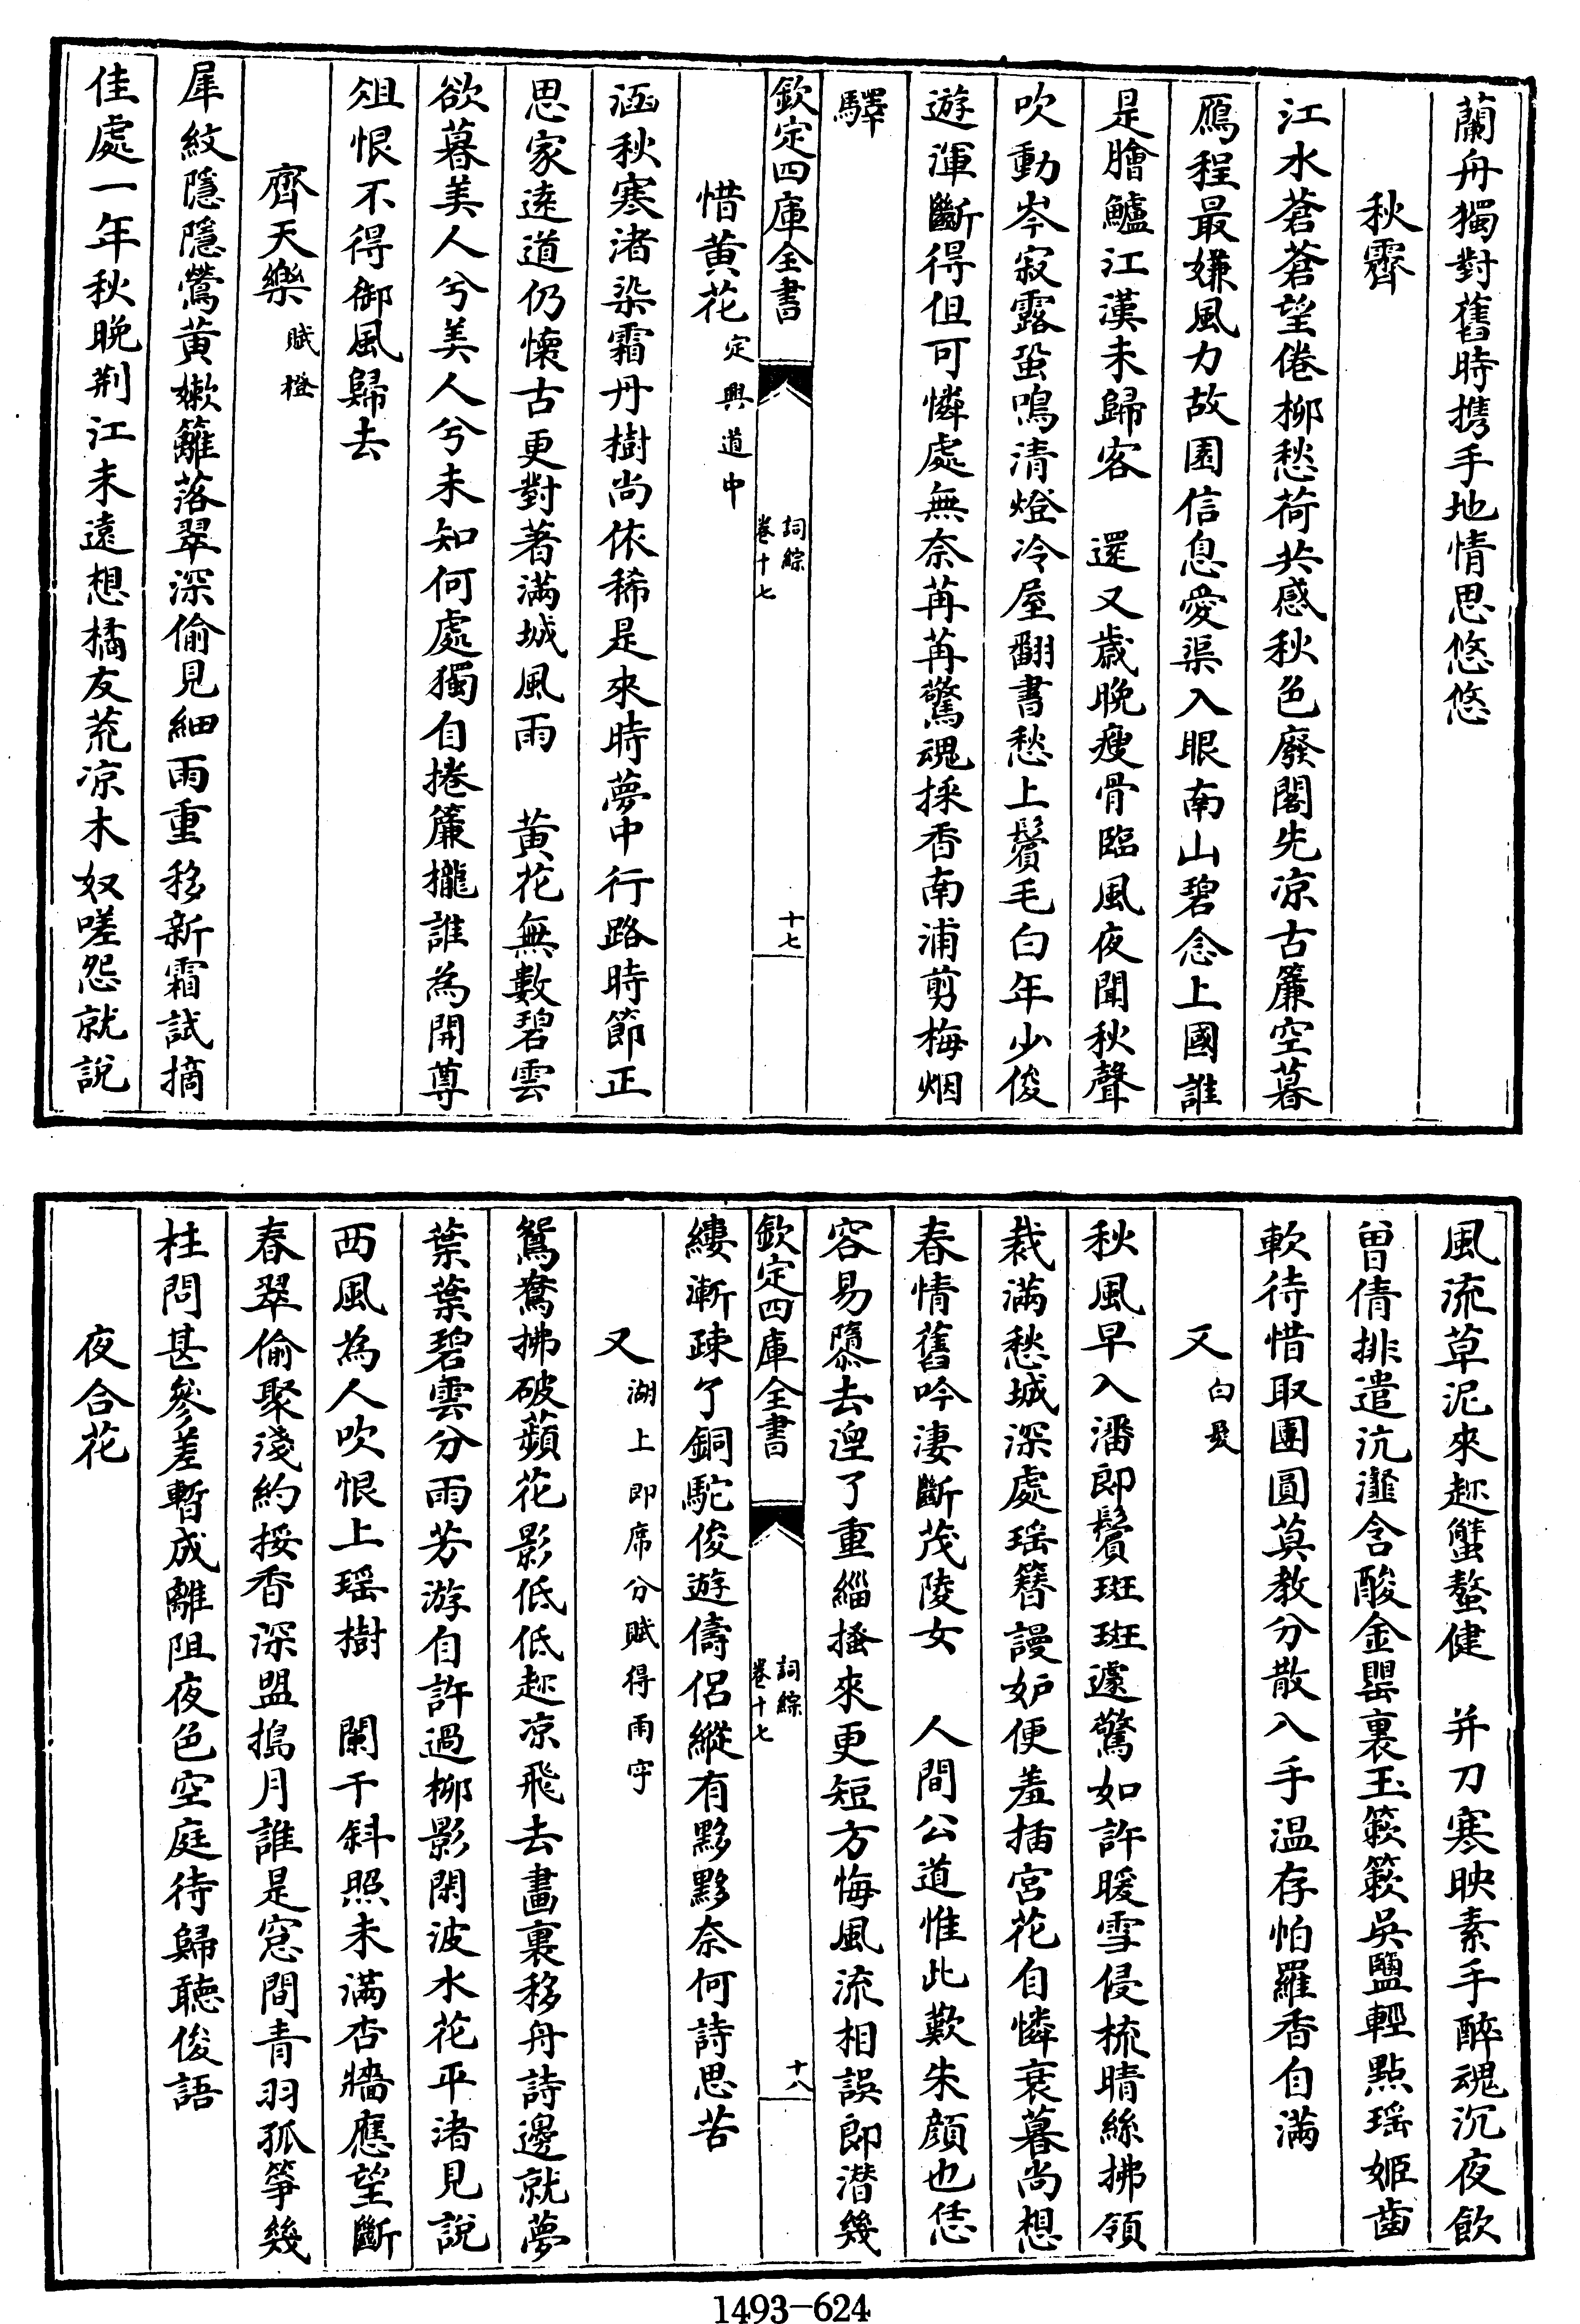 蘭舟獨對舊時携手地情思悠悠
秋霽
江水蒼蒼望倦柳愁荷共感秋色廢閣先凉古簾空暮
鴈程最嫌風力故園信息愛渠入眼南山碧念上國誰
是膾鱸江漢未歸客　還又歳晩瘦骨臨風夜聞秋聲
吹動岑寂露蛩鳴清燈冷屋翻書愁上鬢毛白年少俊
遊渾斷得但可憐處無奈苒苒驚魂採香南浦剪梅烟
驛
欽定四庫全書
詞綜
卷十七
十七
惜黄花定興道中
涵秋寒渚染霜丹樹尚依稀是來時夢中行路時節正
思家逺道仍懐古更對著滿城風雨　黄花無數碧雲
欲暮美人兮美人兮未知何處獨自捲簾櫳誰為開尊
俎恨不得御風歸去
齊天樂賦橙
犀紋隱隱鶯黄嫩籬落翠深偷見細雨重移新霜試摘
佳處一年秋晩荆江未遠想橘友荒凉木奴嗟怨就說
風流草泥來趂蟹螯健　并刀寒映素手醉魂沉夜飲
曽倩排遣沆瀣含酸金罌裏玉簌簌吳鹽輕點瑶姬齒
軟待惜取團圓莫教分散入手温存帕羅香自滿
又白髮
秋風早入潘郎鬢斑斑遽驚如許暖雪侵梳晴絲拂領
栽滿愁城深處瑶簪謾妒便羞插宮花自憐衰暮尚想
春情舊吟凄斷茂陵女　人間公道惟此歎朱顔也恁
容易隳去湼了重緇搔來更短方悔風流相誤郎潜幾
欽定四庫全書
詞綜
卷十七
十八
縷漸疎了銅駝俊遊儔侣縱有黟黟奈何詩思苦
又湖上即席分賦得雨字
鴛鴦拂破蘋花影低低趂凉飛去畫裏移舟詩邊就夢
葉葉碧雲分雨芳游自許過柳影閑波水花平渚見說
西風為人吹恨上瑶樹　闌干斜照未滿杏牆應望斷
春翠偷聚淺約挼香深盟搗月誰是窓間青羽孤箏幾
柱問甚參差暫成離阻夜色空庭待歸聽俊語
夜合花
1493-624